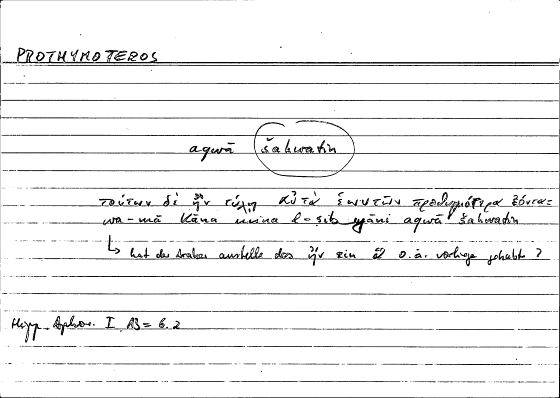 PROTHYMOTEROS
aqwā šahwatin
τούτων δὲ ἢν τύχῃ αὐτὰ ἑωυτῶν προθυμότερα ἐόντα =
wa-mā kāna mina l-ṣibyāni aqwā šahwatin
↳ hat der Araber anstelle des ἢν ein o.ä. vorliegen gehabt ?
Hipp. Aphor. I, 13 = 6.2